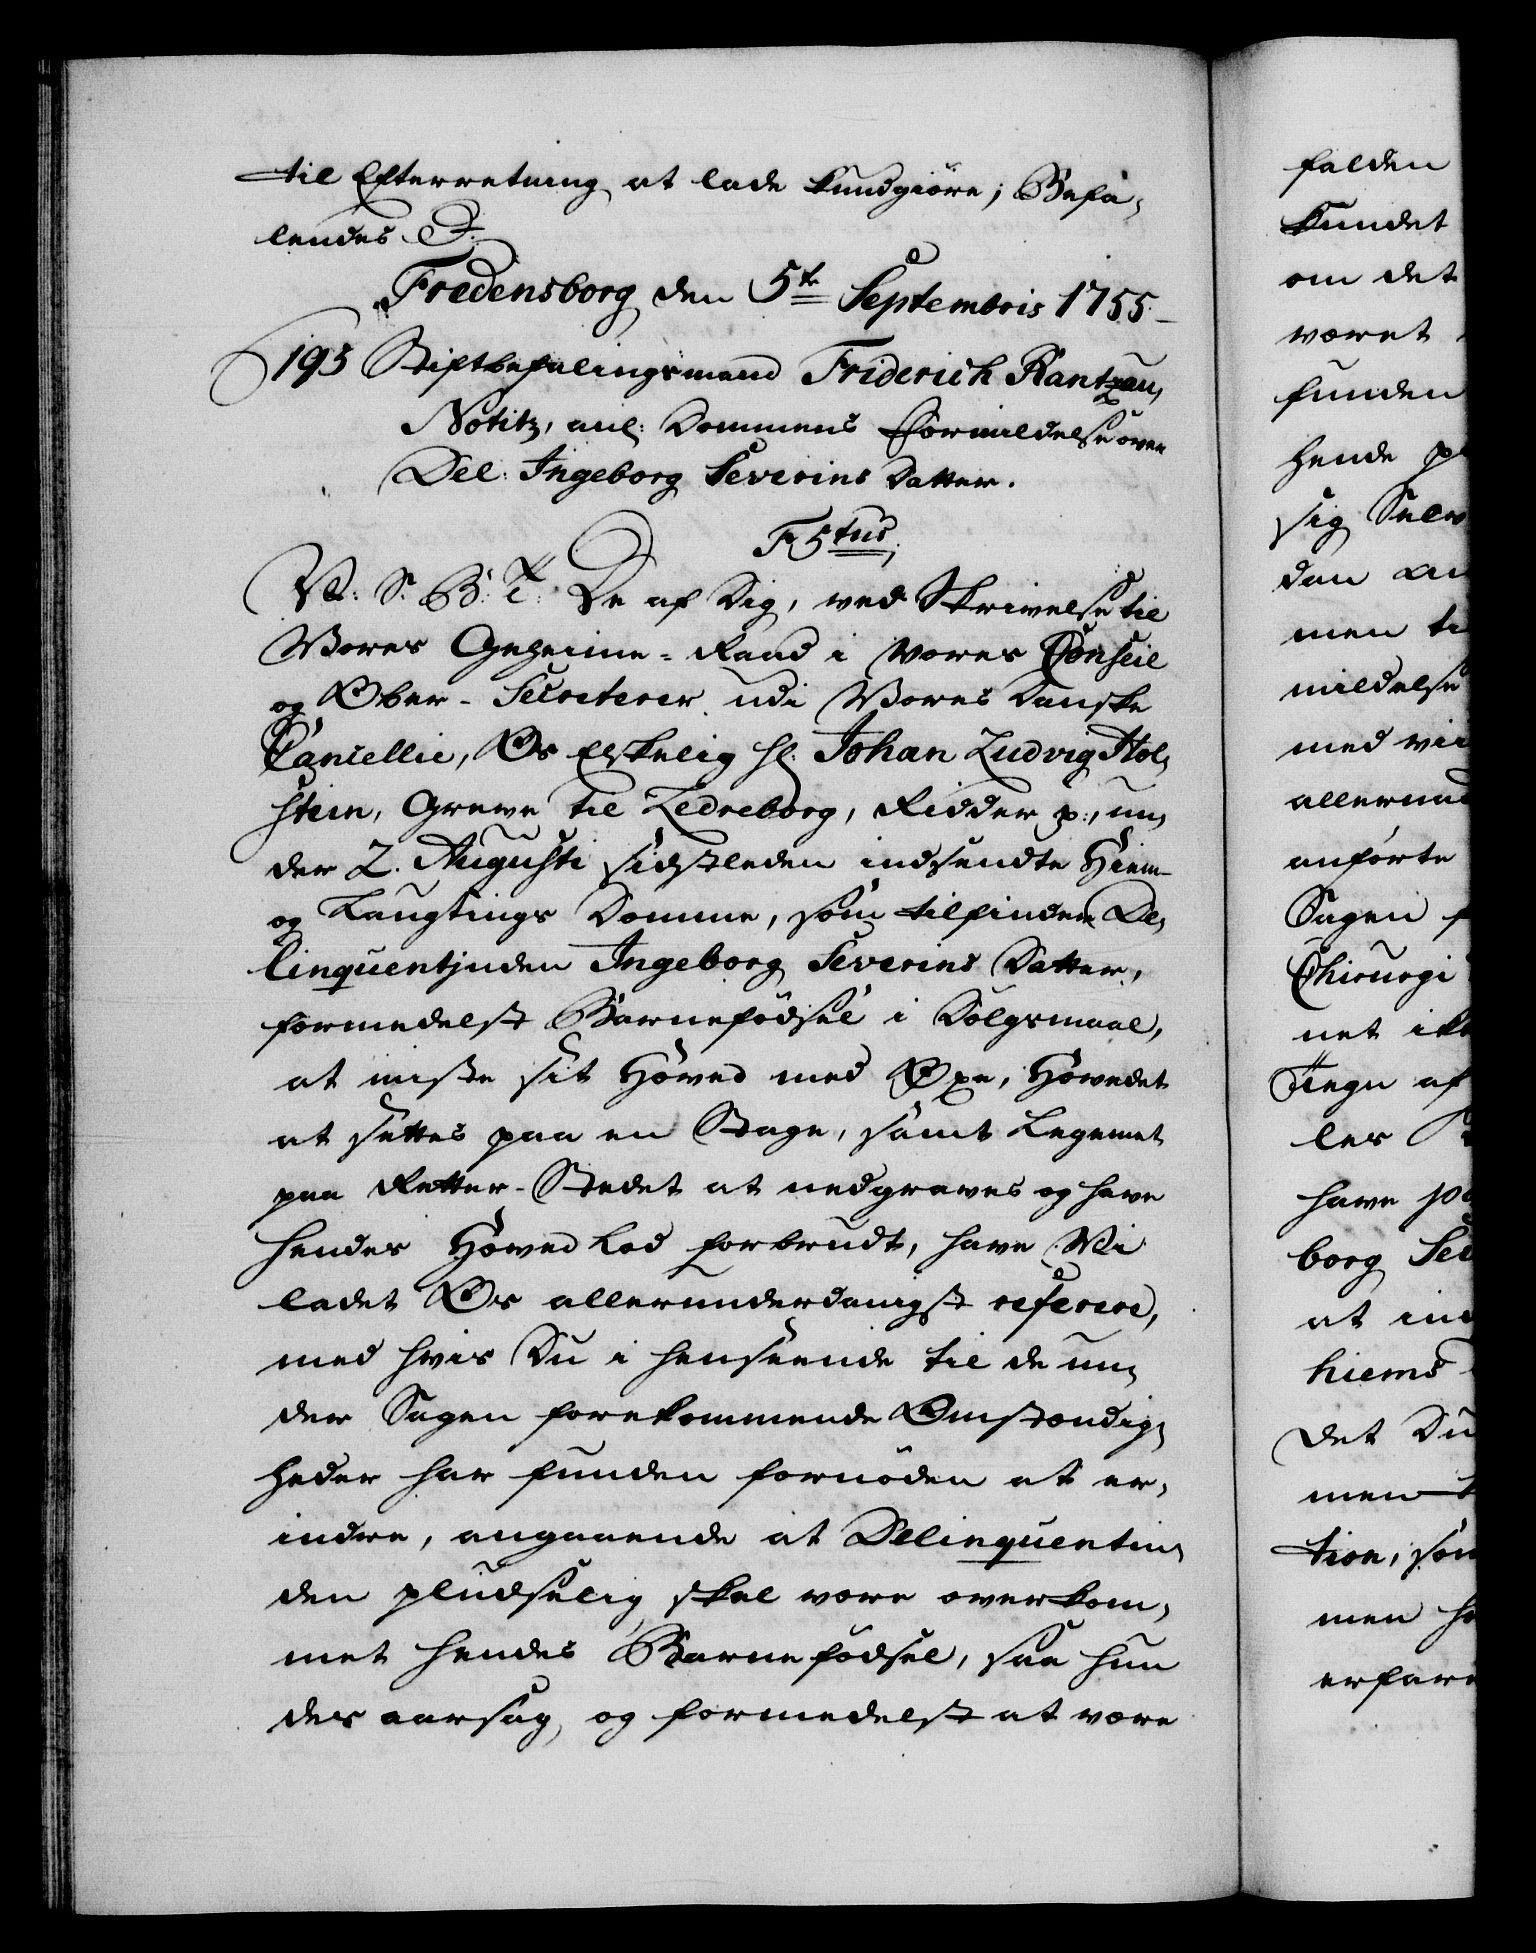 til Efterretning at lade kundgiöre; Befa-
lendes ꝛc.
Fredensborg den 5te Septembris 1755.
193 Stiftbefalingsmand Friderich Rantzau,
Notitz, anl: Dommens Formildelse over
Del: Ingeborg Severins Datter.
F 5tus.
V: S: B: T: De af Dig, ved Skrivelse til
Vores Geheime-Raad i Vores Conseil
og Ober-Secreterer udi Vores Danske
Cancellie, Os Elskelig Hr: Johan Ludvig Hol-
stein, Greve til Ledreborg, Ridder p:, un-
der 2. Augusti sidstleden indsendte Hiem-
og Laugtings Domme, som tilfinder De-
linquentinden Ingeborg Severins Datter,
formedelst Barnefödsel i Dölgsmaal,
at miste sit Hoved med Öxe, Hovedet
at settes paa en Stage, samt Legemet
paa Retter-Stedet at nedgraves og have
hendes Hoved Lod forbrudt, have Vi
ladet Os allerunderdanigst referere,
med hvis Du i henseende til de un-
der Sagen forekommende Omstændig-
heder har funden fornöden at er-
indre, angaaende at Delinquentin-
den pludselig skal være overkom-
met hendes Barnefödsel, saa hun
des aarsag, og formedelst at være
falden
kundet
om det
været
funden
hende
sig Selv
dan
men
mildelse
med
anförte
Sagen
Chirurgi
net
Tegn af
les
have
borg
at
hiems
det Du
men
tion, som
men